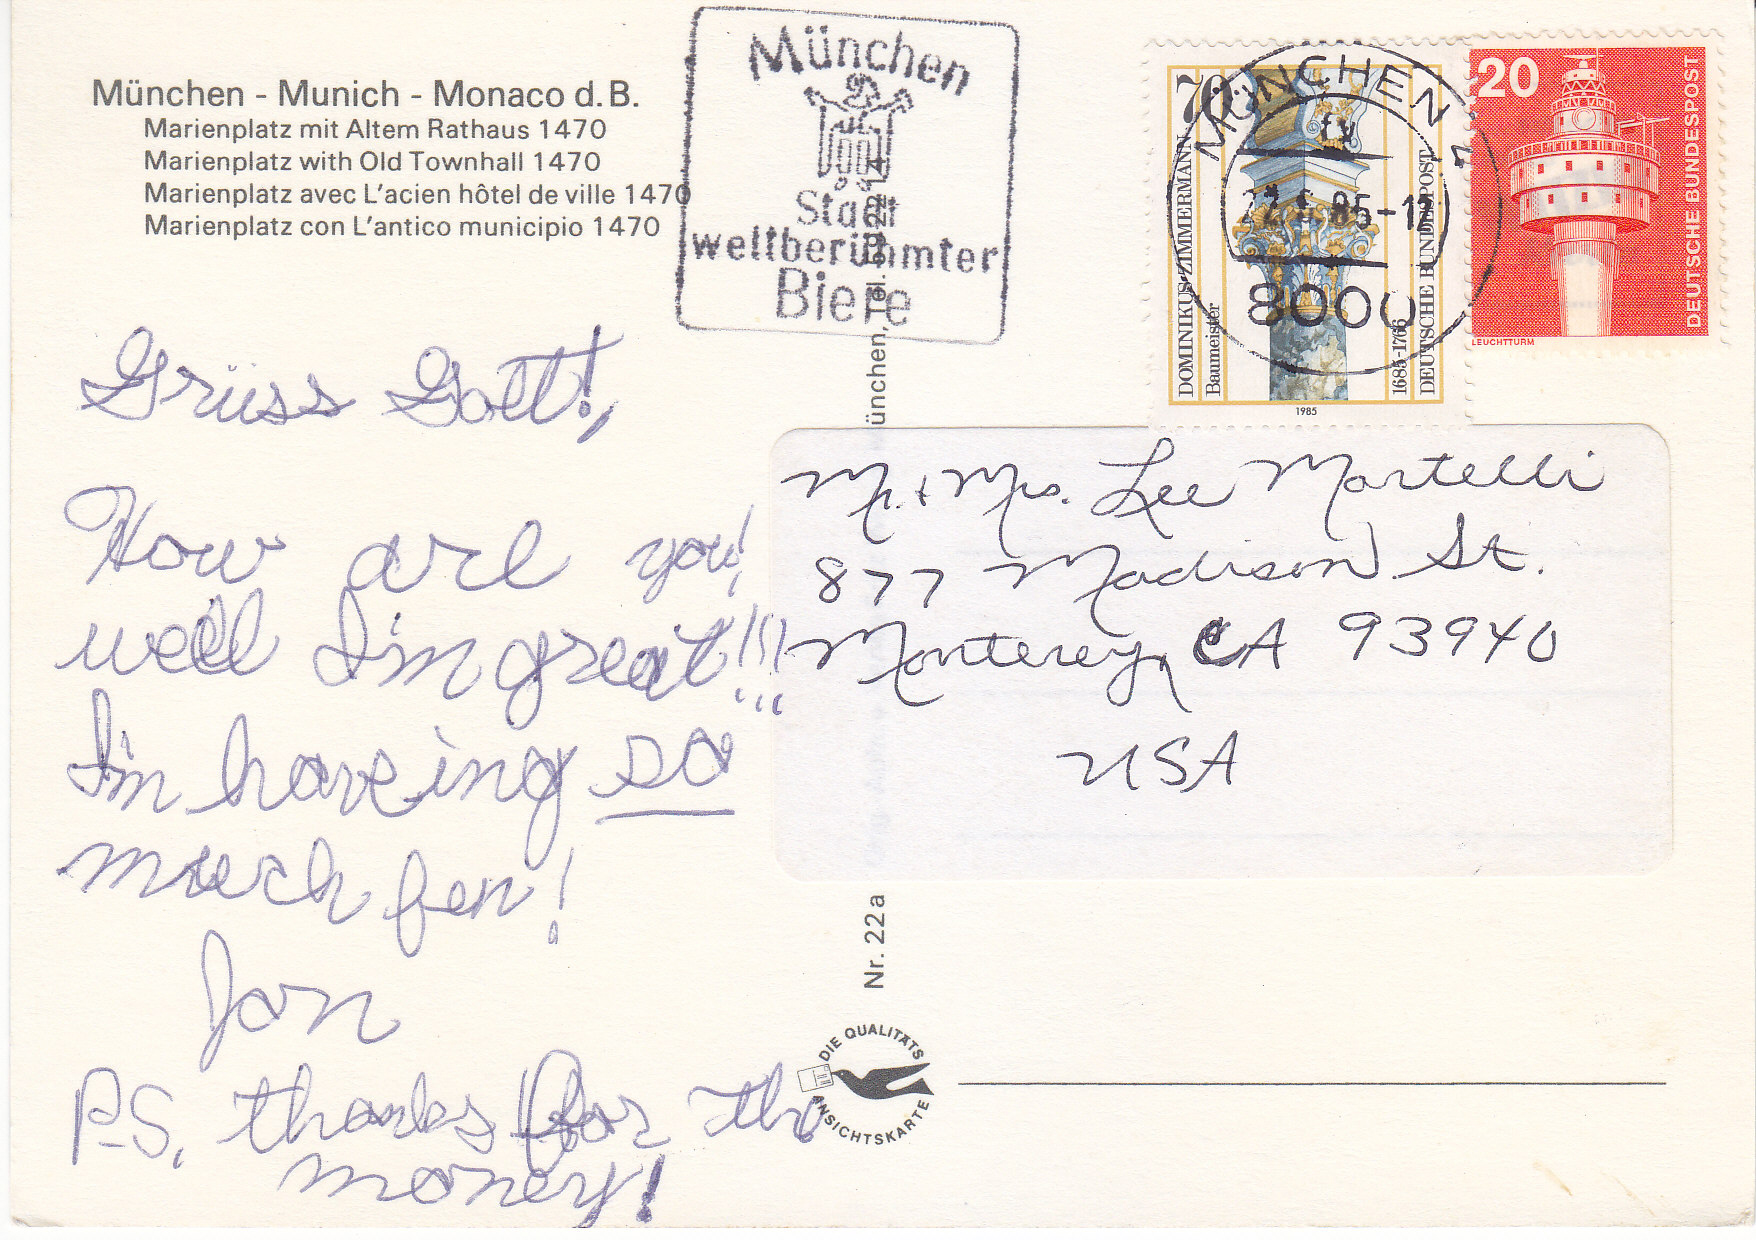 München - Munich - Monaco d. B.
Marienplatz mit Altem Rathaus 1470
Marienplatz with Old Townhall 1470
Marienplatz avec L'acien hôtel de ville 1470
Marienplatz con L'antico municipio 1470
München
Stadt
weltberühmter
Biere
MÜNCHEN
fv
85-12
8000
70
DOMINIKUS ZIMMERMANN
Baumeister
1685-1766
DEUTSCHE BUNDESPOST
1985
20
DEUTSCHE BUNDESPOST
LEUCHTTURM
Grüss Gott!,
How are you!
well I'm great!!!
I'm having so
much fun!
Jan
P.S, thanks for the
money!
Mr. + Mrs. Lee Martelli
877 Madison St.
Monterey, CA 93940
USA
ünchen, Tel. 22 14
Nr. 22a
DIE QUALITÄTS
ANSICHTSKARTE